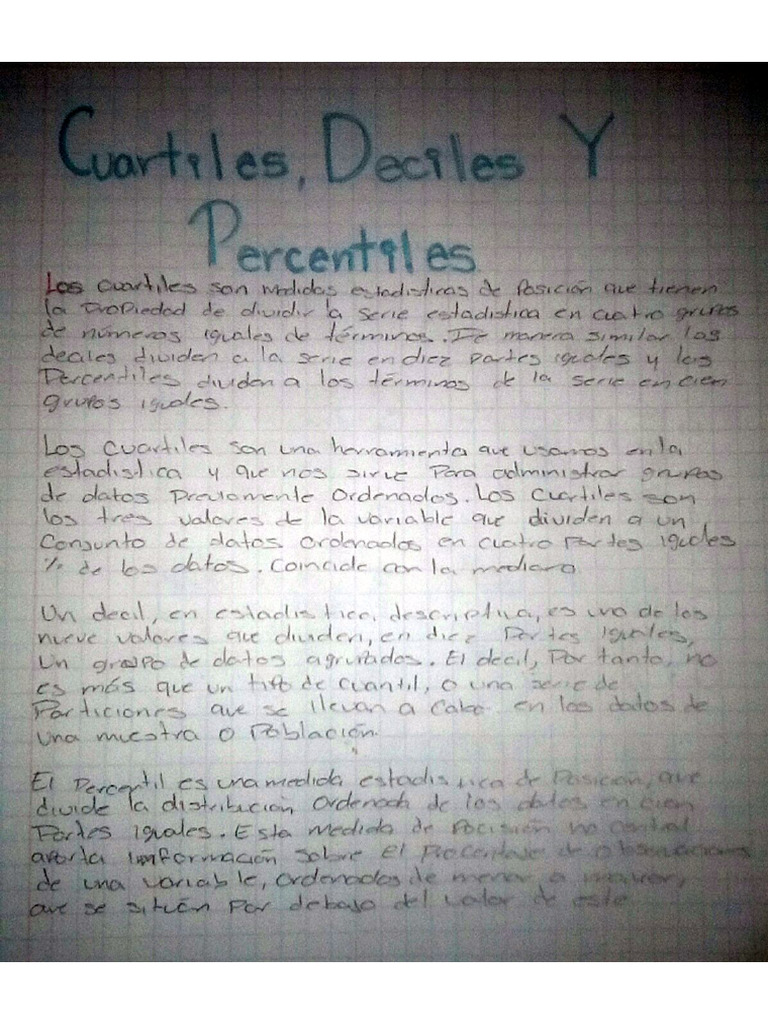 Cuartiles, Deciles Y
Percentiles
Los cuartiles son medidas estadisticas de Posición que tienen
la Propiedad de dividir la serie estadistica en cuatro grupos
de números iguales de términos. De manera similar los
deciles dividen a la serie en diez partes iguales y los
Percentiles dividen a los términos de la serie en cien
grupos iguales.
Los cuartiles son una herramienta que usamos en la
estadistica y que nos sirve Para administrar grupos
de datos Previamente Ordenados. Los cuartiles son
los tres valores de la variable que dividen a un
Conjunto de datos Ordenados en cuatro Partes iguales
% de los datos. Coincide con la mediana
Un decil, en estadistica descriptiva, es uno de los
nueve valores que dividen, en diez Partes Iguales,
Un grupo de datos agrupados. El decil, Por tanto, no
es más que un tipo de cuantil, o una serie de
Particiones que se llevan a Cabo en los datos de
una muestra o Población.
El Percentil es una medida estadistica de Posición, que
divide la distribución Ordenada de los datos en cien
Partes iguales. Esta medida de Pocisión no central
aporta información sobre el Procentaje de observaciones
de una variable, Ordenados de menor a mayor,
que se sitúan Por debajo del valor de este